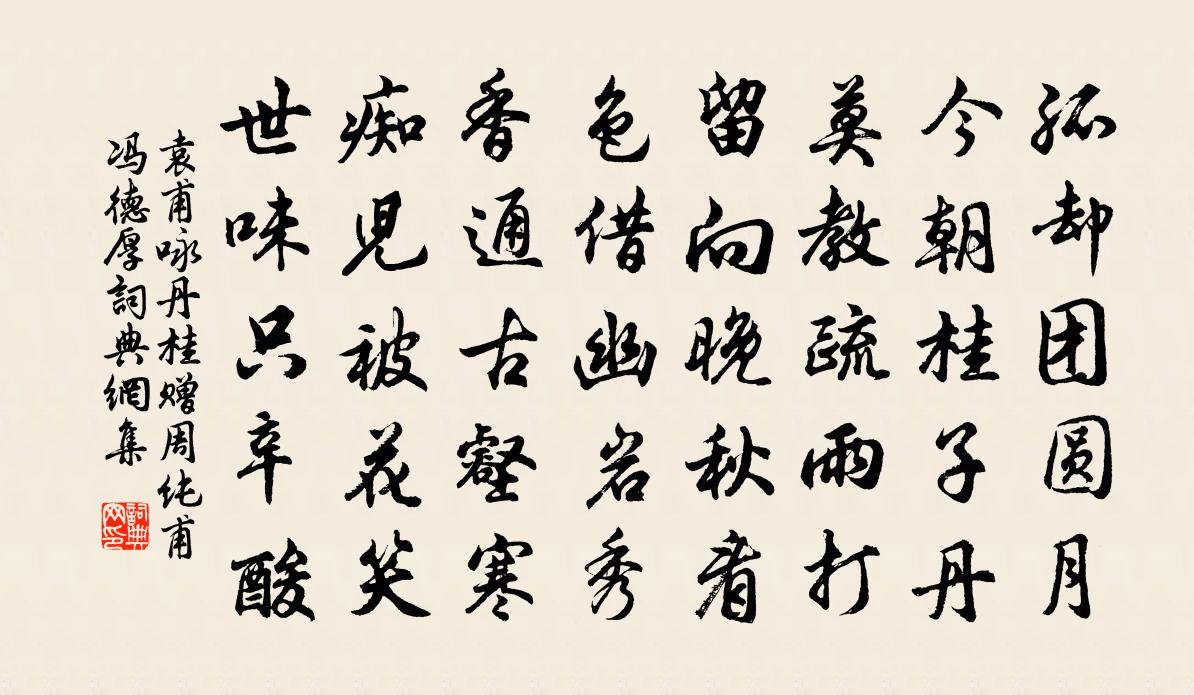 孤却团圆月
今朝桂子丹
莫教疏雨打
留向晚秋看
色借幽岩秀
香通古壑寒
痴児被花笑
世味只辛酸
袁甫咏丹桂赠周纯甫
冯德厚詞典網集
詞典网印